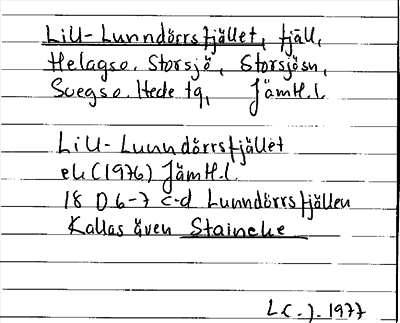 Lill-Lunndörrsfjället, fjäll,
Helagso. Storsjö, Storsjösn,
Svegs o. Hede tg, Jämtl.l.
Lill-Lunndörrsfjället
ek (1976) Jämtl.l.
18 D 6-7 c-d Lunndörrsfjällen
Kallas även Staineke
L C. J. 1977